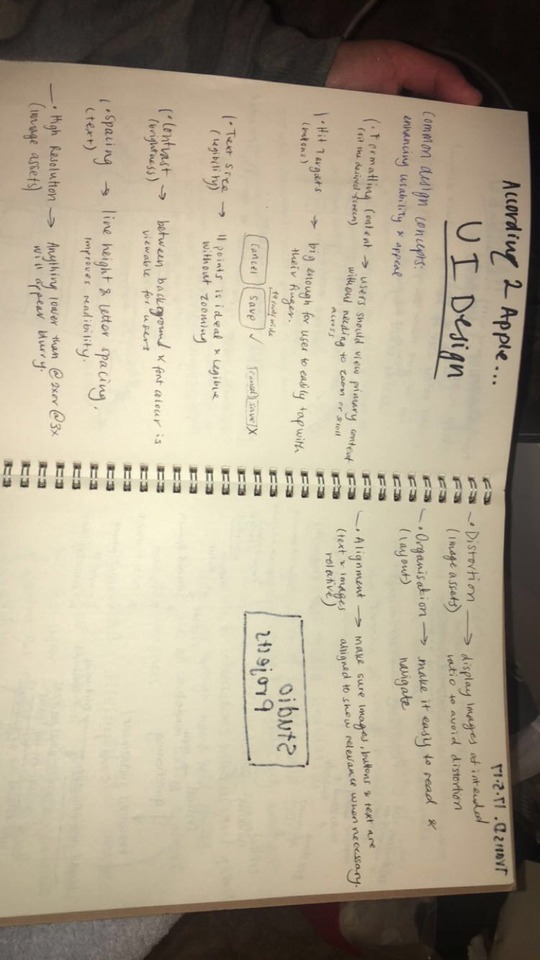 According 2 Apple...
UI Design
Common design concepts:
enhancing usability & appeal
• Formatting Content → users should view primary content
(fit the desired screen) without needing to zoom or scroll
across
• Hit Targets → big enough for user to easily tap with
(buttons) their finger.
Cancel Save ✓ Cancel Save X
• Text Size → 11 points is ideal & legible
(legibility) without zooming
• Contrast → between background & font colour is
(brightness) viewable for users
• Spacing → line height & letter spacing,
(text) improves readibility.
• High Resolution → Anything lower than @2x or @3x
(image assets) will appear blurry.
17.5.17
• Distortion → display images at intended
(image assets) ratio to avoid distortion
• Organisation → make it easy to read &
(layout) navigate
• Alignment → make sure images, buttons & text are
(text & images aligned to show relevance when necessary.
relative)
Studio
Projects